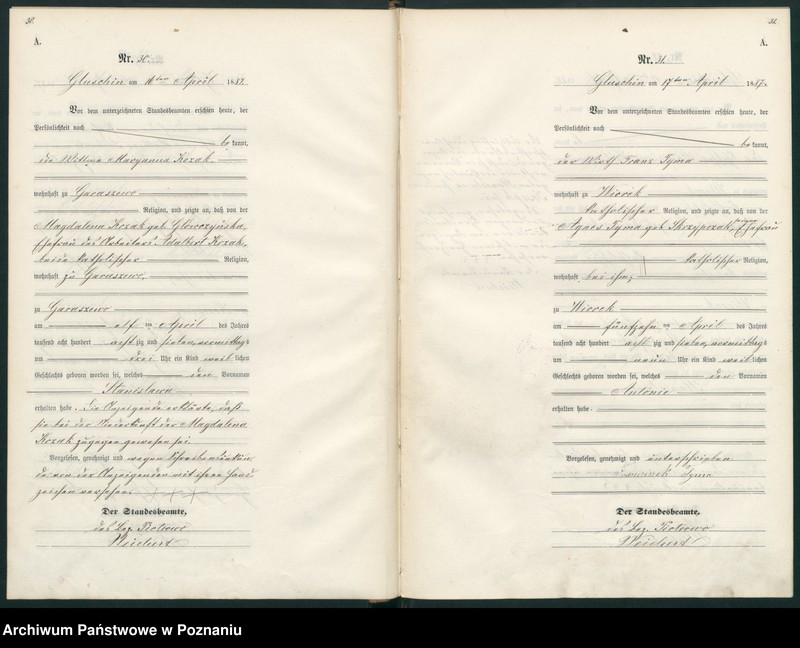 30.
A.
Nr. 30.
Gluschin am 16ten April 1887.
Vor dem unterzeichneten Standesbeamten erschien heute, der
Persönlichkeit nach
be kannt,
die Wittwe Maryanna Kozak
wohnhaft zu Garaszewo
Religion, und zeigte an, daß von der
Magdalena Kozak geb.
Ehefrau des Arbeiters Adalbert Kozak,
beide katholischer Religion,
wohnhaft zu Garaszewo,
zu Garaszewo
am elf ten April des Jahres
tausend acht hundert acht zig und sieben, vormittags
um drei Uhr ein Kind weib lichen
Geschlechts geboren worden sei, welches den Vornamen
Stanislawa
erhalten habe. Die Anzeigende erklärte, daß
sie bei der Niederkunft der Magdalena
Kozak zugegen gewesen sei.
Vorgelesen, genehmigt und wegen Schreibensunkun
de von der Anzeigenden mit ihrem Hand
zeichen versehen.
+++
Der Standesbeamte,
des Bez. Piotrowo
Weichert
31.
A.
Nr. 31.
Gluschin am 17ten April 1887.
Vor dem unterzeichneten Standesbeamten erschien heute, der
Persönlichkeit nach
be kannt,
der Wirth Franz Tyma
wohnhaft zu Wiorek
katholischer Religion, und zeigte an, daß von der
Agnes Tyma geb Skrzypczak, seiner Ehefrau
katholischer Religion,
wohnhaft bei ihm,
zu Wiorek
am fünfzehn ten April des Jahres
tausend acht hundert acht zig und sieben, vormittags
um neun Uhr ein Kind weib lichen
Geschlechts geboren worden sei, welches den Vornamen
Antonie
erhalten habe.
Vorgelesen, genehmigt und unterschrieben
Tyma
Der Standesbeamte,
des Bez. Piotrowo
Weichert
Archiwum Państwowe w Poznaniu